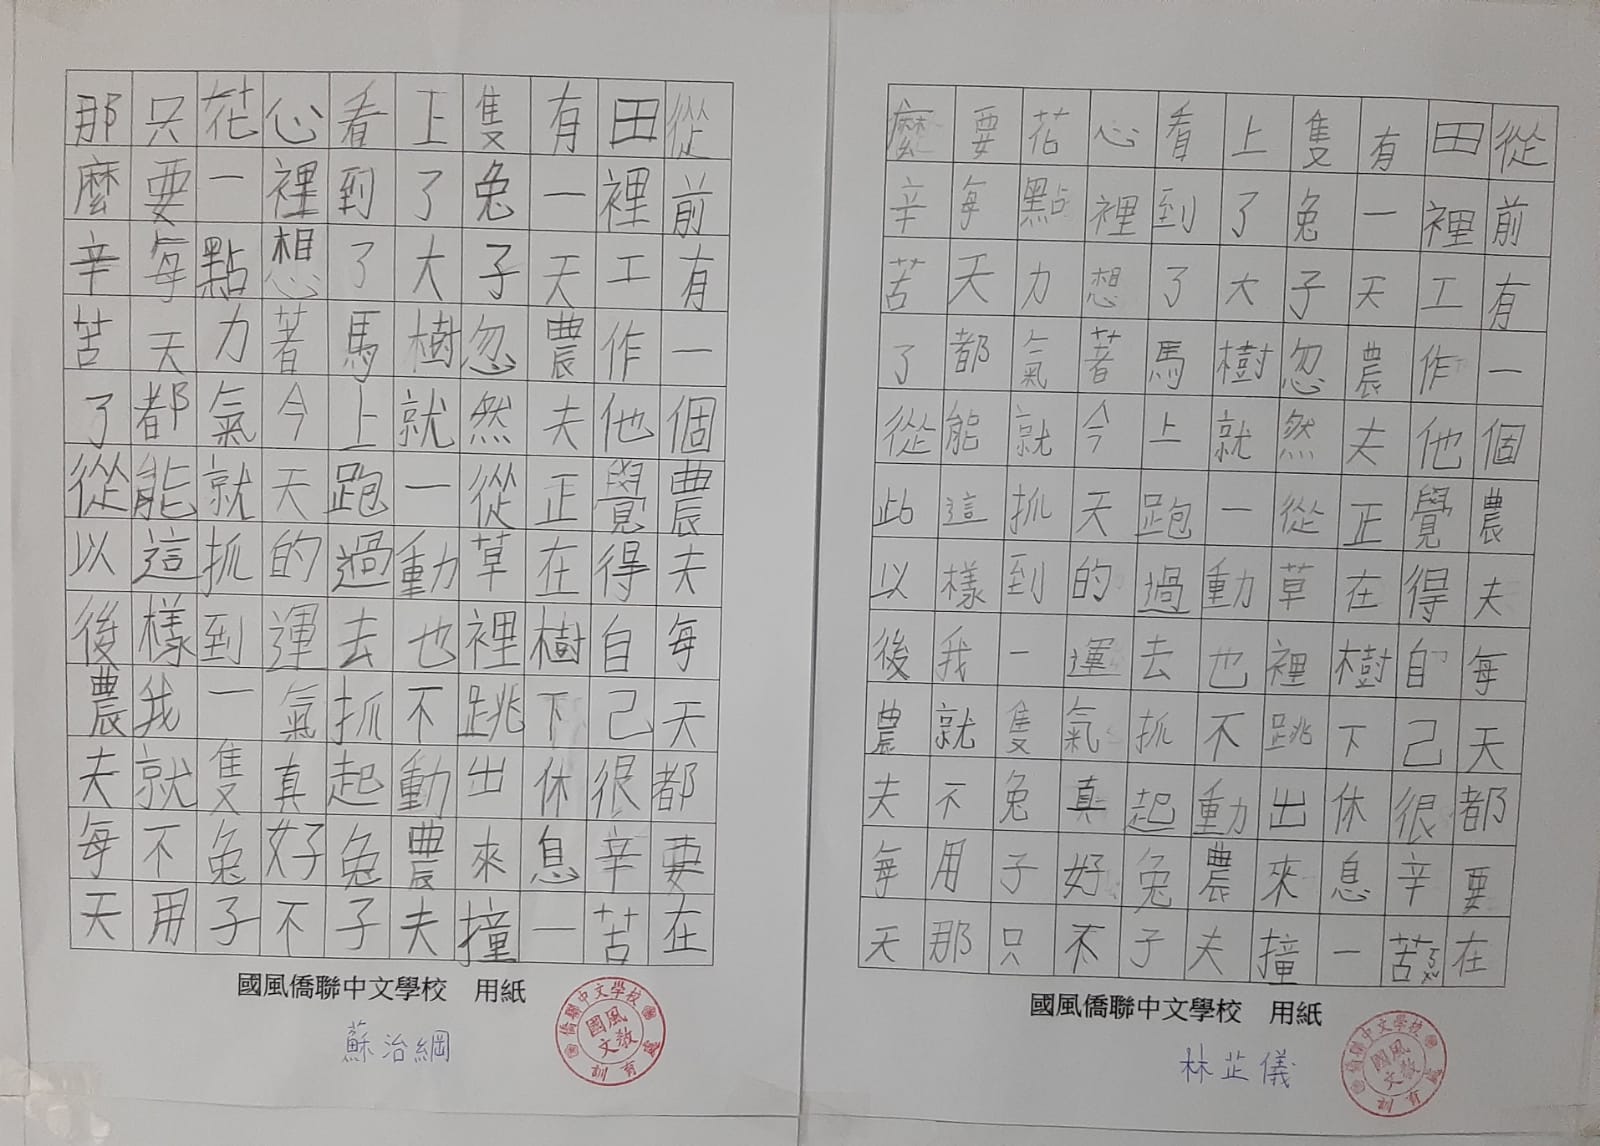 從前有一個農夫每天都要在
田裡工作他覺得自己很辛苦
有一天農夫正在樹下休息一
隻兔子忽然從草裡跳出來撞
上了大樹就一動也不動農夫
看到了馬上跑過去抓起兔子
心裡想著今天的運氣真好不
花一點力氣就抓到一隻兔子
只要每天都能這樣我就不用
那麼辛苦了從以後農夫每天
國風僑聯中文學校 用紙
蘇治綱
僑聯中文學校
國風文教
訓育處
從前有一個農夫每天都要在
田裡工作他覺得自己很辛苦
有一天農夫正在樹下休息一
隻兔子忽然從草裡跳出來撞
上了大樹就一動也不動農夫
看到了馬上跑過去抓起兔子
心裡想著今天的運氣真好不
花點力氣就抓到一隻兔子只
要每天都能這樣我就不用那
麼辛苦了從此以後農夫每天
國風僑聯中文學校 用紙
林芷儀
僑聯中文學校
國風文教
訓育處